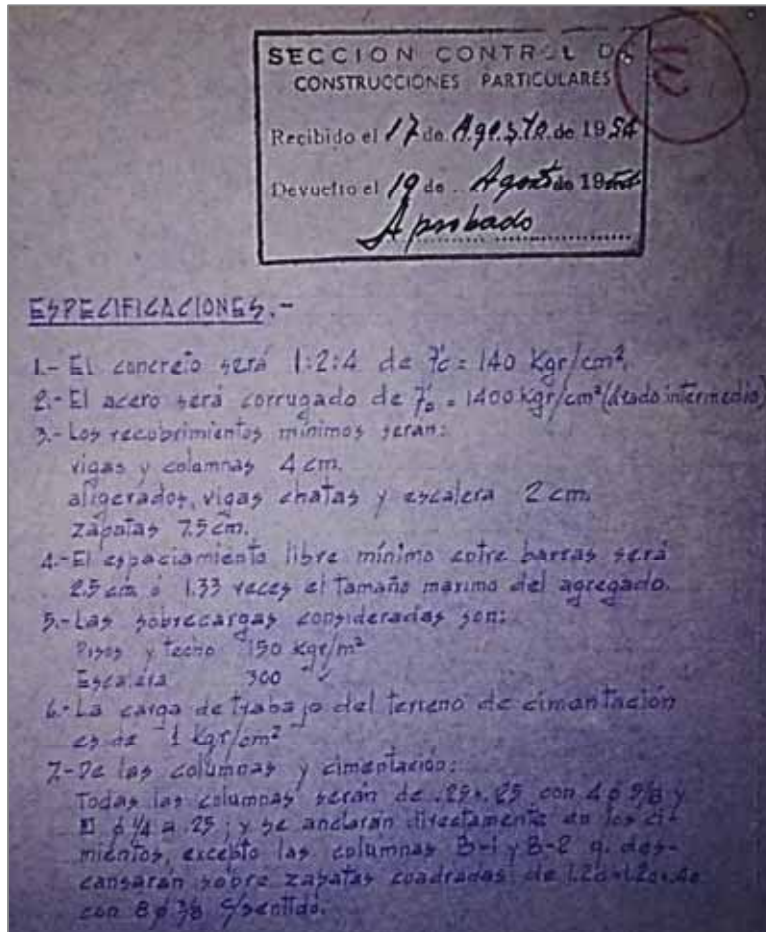 SECCION CONTROL DE
CONSTRUCCIONES PARTICULARES
Recibido el 17 de Agosto de 1954
Devuelto el 19 de Agosto de 19
Aprobado
ESPECIFICACIONES.-
1.- El concreto será 1:2:4 de f'c = 140 Kgr/cm².
2.- El acero será corrugado de = 1400 Kgr/cm² (Grado intermedio)
3.- Los recubrimientos mínimos seran:
vigas y columnas 4 cm.
aligerados, vigas chatas y escalera 2 cm.
zapatas 7.5 cm.
4.- El espaciamiento libre mínimo entre barras será
2.5 cm ó 1.33 veces el tamaño maximo del agregado.
5.- Las sobrecargas consideradas son:
Pisos y techo 150 Kgr/m²
Escalera 300 "
6.- La carga de trabajo del terreno de cimentación
es de 1 Kgr/cm²
7.- De las columnas y cimentación:
Todas las columnas serán de .25×.25 con 4 ø 5/8 y
ø 1/4 a .25; y se anclarán directamente en los ci-
mientos, excepto las columnas B-1 y B-2 q. des-
cansarán sobre zapatas cuadradas de 1.20×1.20×.40
con 8 ø 3/8 c/sentido.